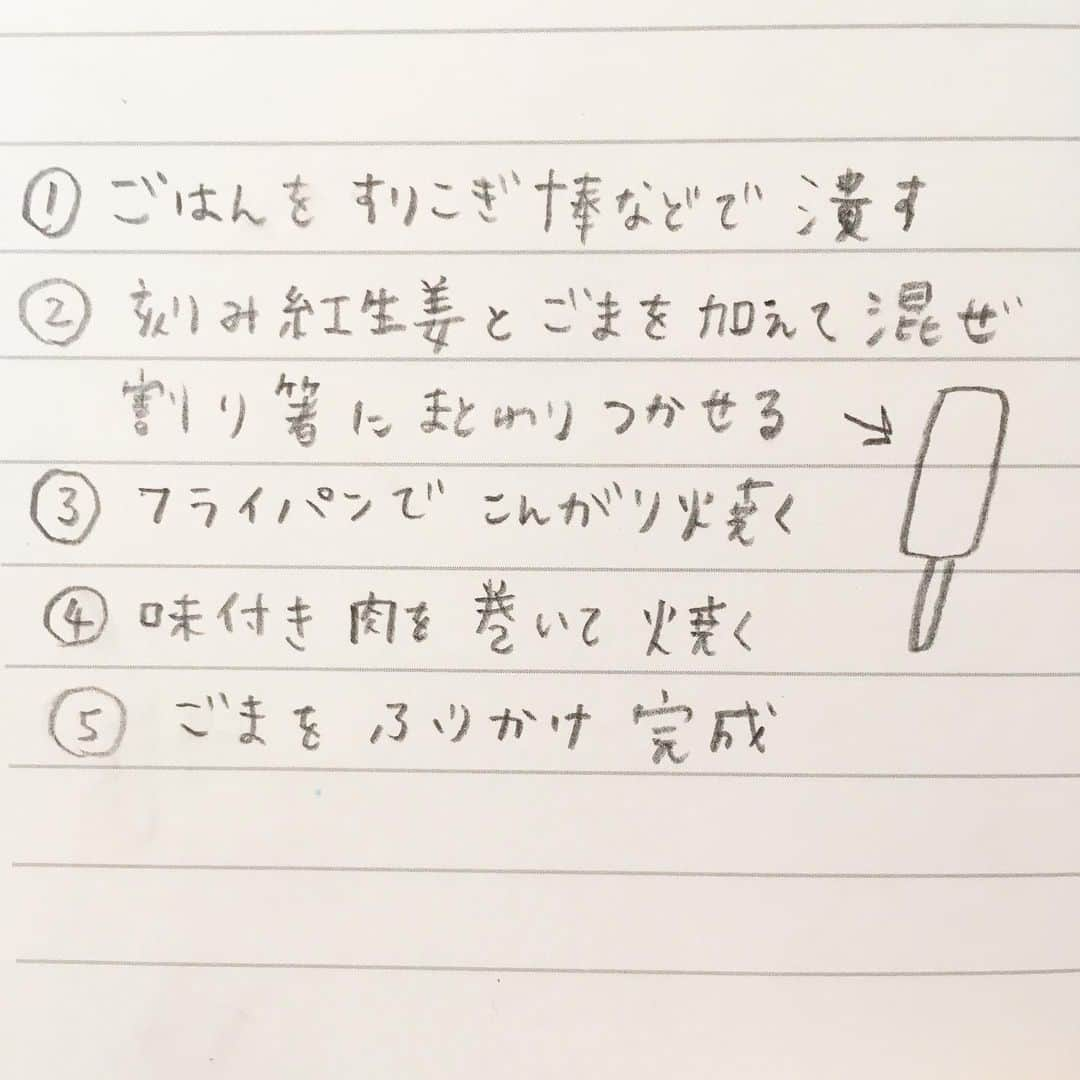 ① ごはんを すりこぎ棒などで 潰す
② 刻み紅生姜と ごまを 加えて 混ぜ
割り箸に まとわりつかせる
③ フライパンで こんがり焼く
④ 味付き 肉を 巻いて 焼く
⑤ ごまを ふりかけ 完成